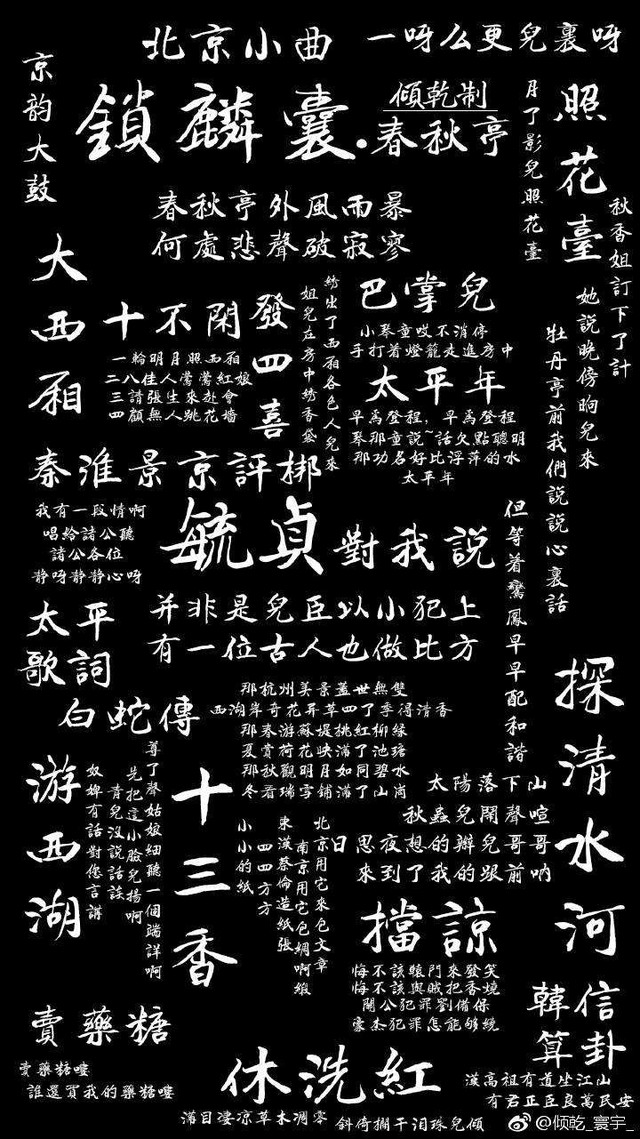 北京小曲
一呀么更兒裏呀
京韵大鼓
鎖麟囊·春秋亭
傾乾制
月了影兒照花臺
照花臺
秋香姐訂下了計
她說晚傍晌兒來
牡丹亭前我們說說心裏話
但等着鸞鳳早早配和諧
春秋亭外風雨暴
何處悲聲破寂寥
大西厢
十不閑
一輪明月照西廂
二八佳人鶯鶯紅娘
三請張生來赴會
四顧無人跳花墻
發四喜
姐兒在房中綉香袋
綉出了西廂各色人兒來
巴掌兒
小琴童哎不消停
手打着燈籠走進房中
太平年
早爲登程，早爲登程
琴那童說~話欠點聰明
那功名好比浮萍的水
太平年
秦淮景京評梆
我有一段情啊
唱給諸公聽
諸公各位
静呀静静心呀
毓貞對我說
并非是兒臣以小犯上
有一位古人也做比方
太平歌詞
白蛇傳
那杭州美景蓋世無雙
西湖岸奇花异草四了季得清香
那春游蘇堤桃紅柳緑
夏賞荷花映滿了池塘
那秋觀明月如同碧水
冬看瑞雪鋪滿了山崗
游西湖
尊了聲姑娘細聽一個端詳啊
先把這小臉兒揚啊
青兒没說話談
奴婢有話對您言講
十三香
小小的紙
四四方方
東漢蔡倫造紙張
南京用它包綢啊緞
北京用它來包文章
探清水河
太陽落下山
秋蟲兒鬧聲喧
日思夜想的辦兒哥哥
來到了我的跟前吶
擋諒
悔不該轅門來發笑
悔不該與賊把香燒
關公犯罪劉備保
豪杰犯罪怎能够繞
賣藥糖
賣藥糖嘍
誰還買我的藥糖嘍
休洗紅
滿目凄凉草木凋零
斜倚攔干泪珠兒傾
韓信算卦
漢高祖有道坐江山
有君正臣良萬民安
@倾乾_寰宇_